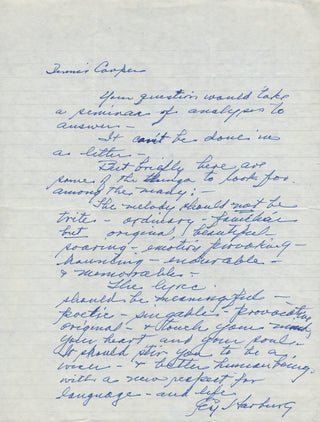 Dennis Cooper
Your question would take
a seminar of analyses to
answer —
It can't be done in
a letter —
But briefly here are
some of the things to look for
among the many: —
The melody should not be
trite — ordinary — familiar
but original, beautiful
soaring — emotion provoking —
haunting — endurable —
& memorable —
The lyric
should be meaningful —
poetic — singable — provocative,
original — & touch your mind,
your heart and your soul.
It should stir you to be a
wiser — & better human being,
with a new respect for
language — and life
EY Harburg